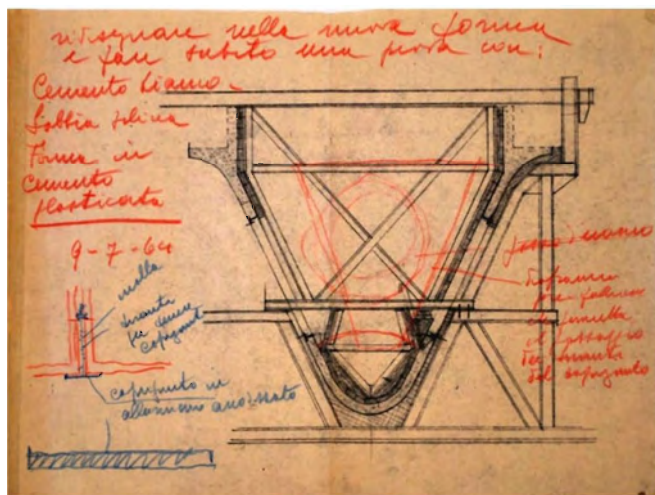 ridisegnare nella nuova forma
e fare subito una prova con:
Cemento bianco -
Sabbia silicea
Forma in
cemento
plasticata
9-7-64
molla
tirante
per tenere
coprigiunto
coprigiunto in
alluminio anodizzato
passo d'uomo
che permetta
il passaggio
del coprigiunto